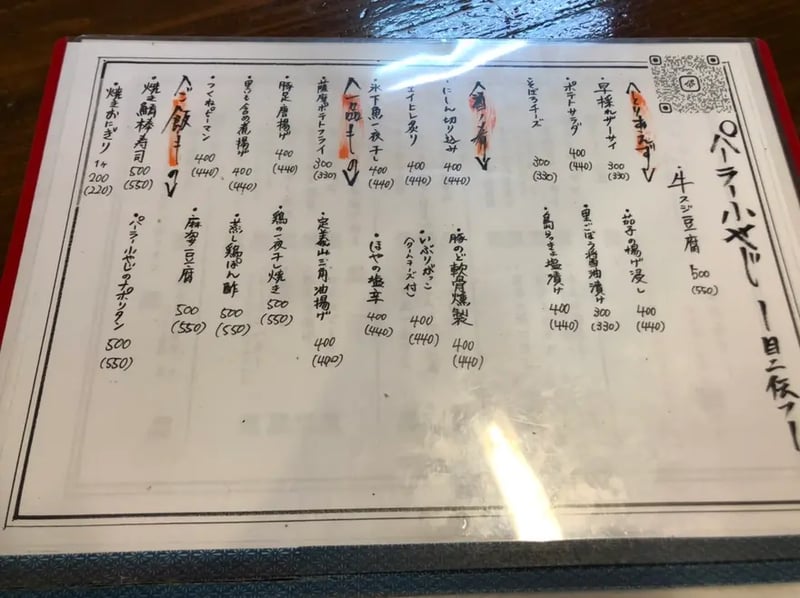 ペーラー小やじ
牛スジ豆腐 500 (550)
とりあえず
早採れザーサイ 300 (330)
茄子の揚げ浸し 400 (440)
ポテトサラダ 400 (440)
黒ごぼう醤油漬け 300 (330)
そぼろチーズ 300 (330)
島らっきょ塩漬け 400 (440)
酒ノ肴
にしん切り込み 400 (440)
豚のど軟骨燻製 400 (440)
エイヒレ炙り 400 (440)
いぶりがっこ (クリームチーズ付) 400 (440)
氷下魚一夜干し 400 (440)
ほやの塩辛 400 (440)
一品もの
薩摩ポテトフライ 300 (330)
定義山三角油揚げ 400 (440)
豚足唐揚げ 400 (440)
鶏の一夜干し焼き 500 (550)
400 (440)
蒸し鶏ぽん酢 500 (550)
つくねピーマン 400 (440)
麻婆豆腐 500 (550)
ご飯もの
焼き鯖棒寿司 500 (550)
ペーラー小やじのナポリタン 500 (550)
焼きおにぎり 1ヶ 200 (220)